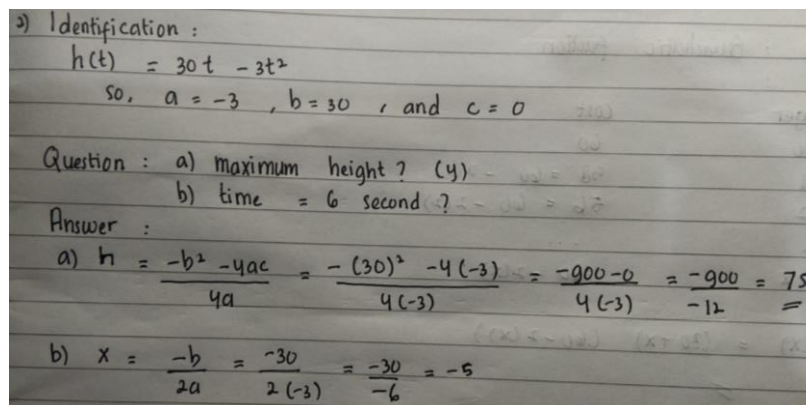 2) Identification :
h(t) = 30t - 3t²
so, a = -3 , b = 30 , and c = 0
Question : a) maximum height ? (y)
b) time = 6 second ?
Answer :
a) h = -b² - 4ac / 4a = -(30)² - 4(-3) / 4(-3) = -900 - 0 / 4(-3) = -900 / -12 = 75
b) x = -b / 2a = -30 / 2(-3) = -30 / -6 = -5